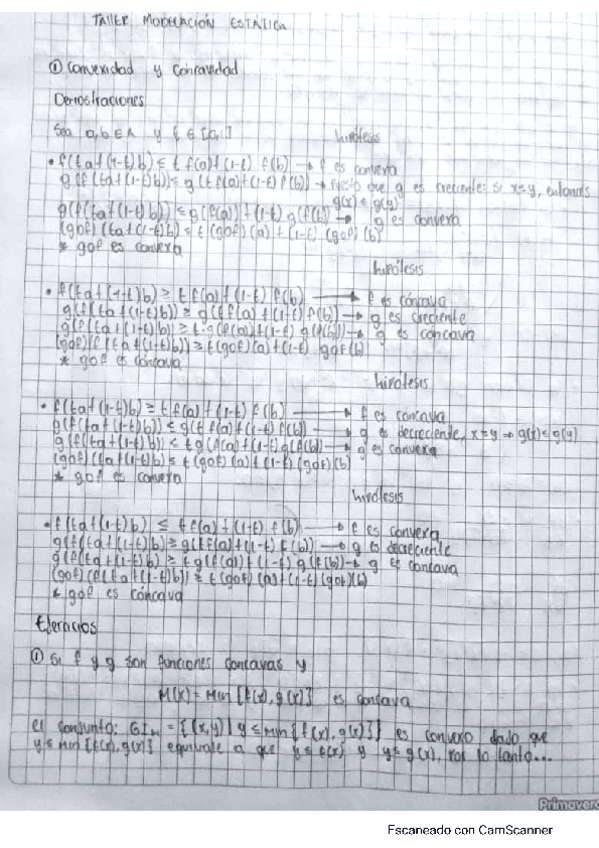 TALLER MODELACIÓN ESTÁTICA
① Convexidad y Concavidad
Demostraciones
Sea a,b∈A y t∈[0,1] hipótesis
• f(ta+(1-t)b) ≤ t f(a)+(1-t) f(b) → f es convexa
g(f(ta+(1-t)b)) ≤ g(t f(a)+(1-t) f(b)) → puesto que g es creciente: si x≤y, entonces
g(x) ≤ g(y)
g(f(ta+(1-t)b)) ≤ g(f(a))+(1-t) g(f(b)) → g es convexa
(gof)(ta+(1-t)b) ≤ t (gof)(a)+(1-t) (gof)(b)
* gof es convexa
hipótesis
• f(ta+(1-t)b) ≥ t f(a)+(1-t) f(b) → f es cóncava
g(f(ta+(1-t)b)) ≥ g(t f(a)+(1-t) f(b)) → g es creciente
g(f(ta+(1-t)b)) ≥ t g(f(a))+(1-t) g(f(b)) → g es cóncava
(gof)(f(ta+(1-t)b)) ≥ t(gof)(a)+(1-t) (gof)(b)
* gof es cóncava
hipótesis
• f(ta+(1-t)b) ≥ t f(a)+(1-t) f(b) → f es concava
g(f(ta+(1-t)b)) ≤ g(t f(a)+(1-t) f(b)) → g es decreciente, x≥y → g(x)≤g(y)
g(f(ta+(1-t)b)) ≤ t g(f(a)+(1-t) g(f(b)) → g es convexa
(gof)(ta+(1-t)b) ≤ t (gof)(a)+(1-t) (gof)(b)
* gof es convexa
hipótesis
• f(ta+(1-t)b) ≤ t f(a)+(1-t) f(b) → f es convexa
g(f(ta+(1-t)b) ≥ g(t f(a)+(1-t) f(b)) → g es decreciente
g(f(ta+(1-t)b) ≥ t g(f(a))+(1-t) g(f(b)) → g es concava
(gof)(f(ta+(1-t)b)) ≥ t(gof)(a)+(1-t)(gof)(b)
* gof es cóncava
Ejercicios
① Si f y g son funciones concavas y
M(x) = Min {f(x), g(x)} es concava
el conjunto: = {(x,y) | y ≤ min {f(x), g(x)}} es convexo dado que
y ≤ min {f(x), g(x)} equivale a que y ≤ f(x) y y ≤ g(x), por lo tanto...
Primavera
Escaneado con CamScanner